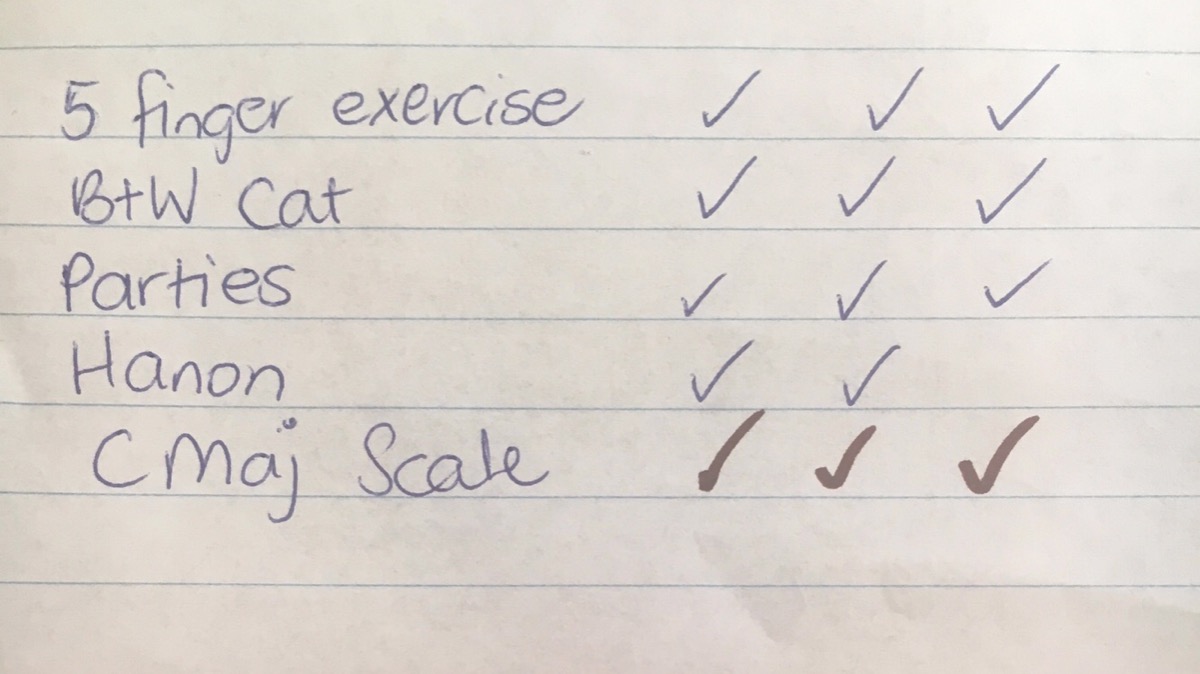 5 finger exercise ✓ ✓ ✓
B+W Cat ✓ ✓ ✓
Parties ✓ ✓ ✓
Hanon ✓ ✓
C Maj Scale ✓ ✓ ✓